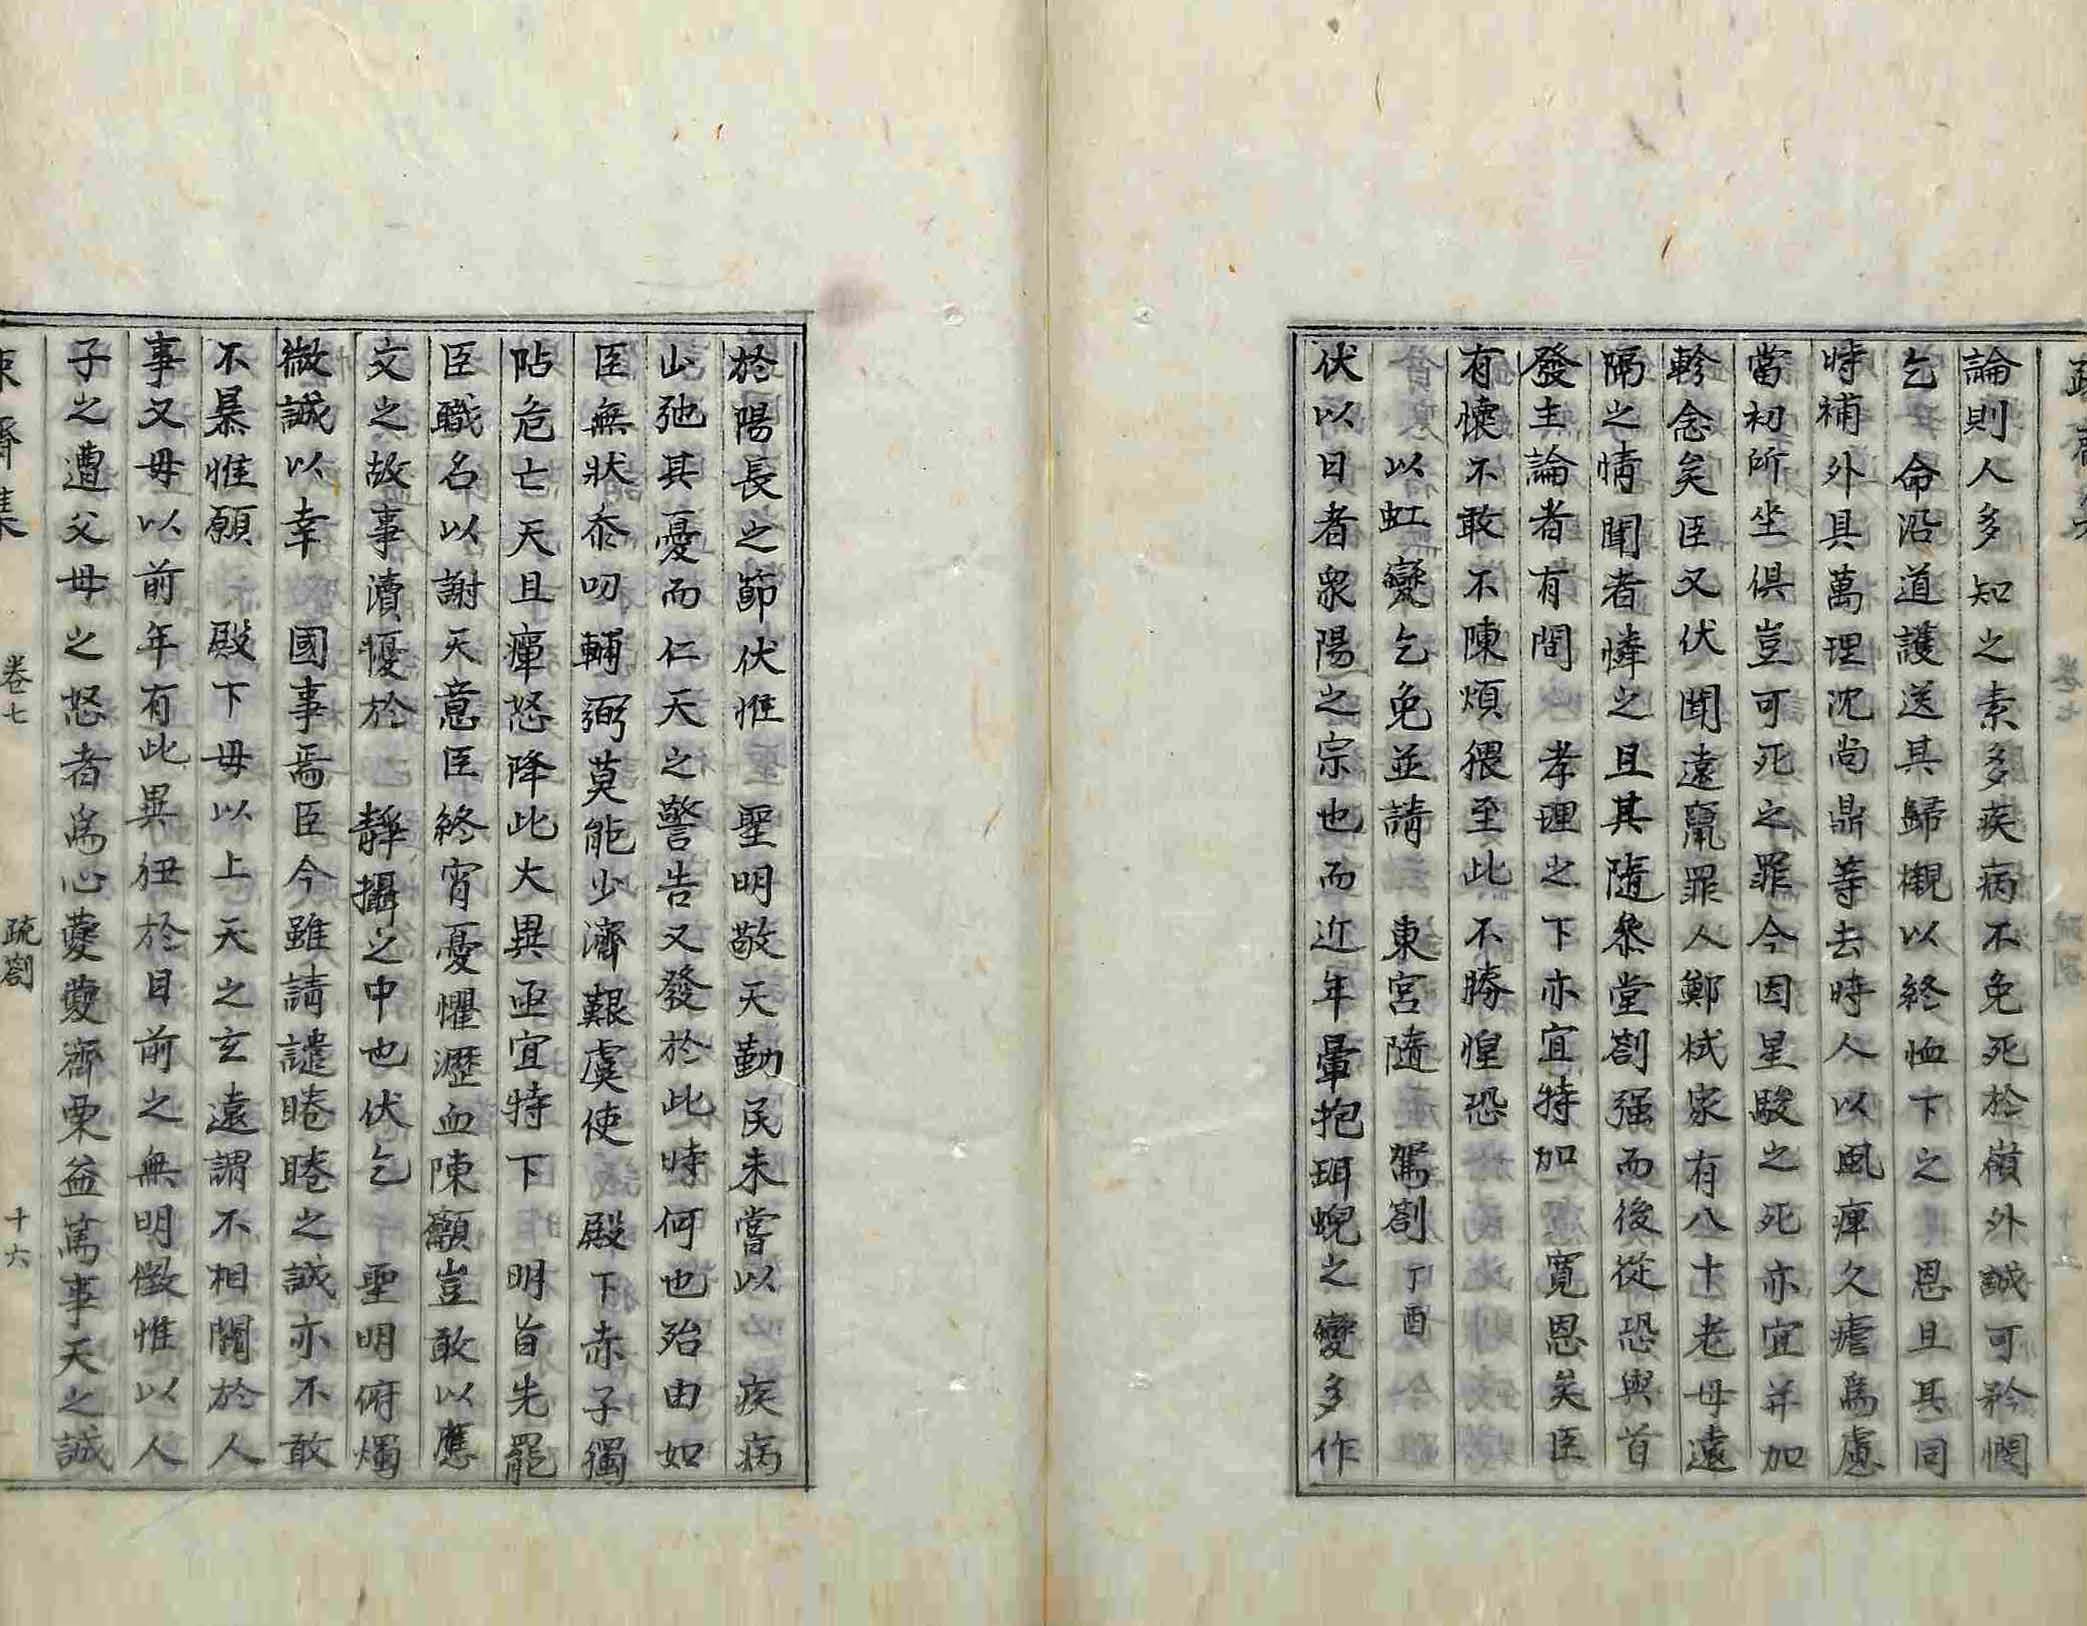 論則人多知之素多疾病不免死於嶺外誠可矜憫
乞命沿道護送其歸櫬以終恤下之恩且其同
時補外具萬理沈尚鼎等去時人以風痺久瘧爲慮
當初所坐俱豈可死之罪今因星駿之死亦宜并加
軫念矣臣又伏聞遠竄罪人鄭栻家有八十老母遠
隔之情聞者憐之且其隨參堂劄强而後從恐與首
發主論者有間 孝理之下亦宜特加 寬恩矣臣
有懷不敢不陳煩猥至此不勝惶恐
以虹變乞免並請 東宮隨 駕劄 丁酉
伏以日者衆陽之宗也而近年暈抱珥蜺之變多作
於陽長之節伏惟 聖明敬天勤民未嘗以疾病
少弛其憂而仁天之警告又發於此時何也殆由如
臣無狀忝叨輔弼莫能少濟艱虞使 殿下赤子獨
阽危亡天且癉怒降此大異亟宜特下 明旨先罷
臣職名以謝天意臣終宵憂懼瀝血陳籲豈敢以應
文之故事瀆擾於 靜攝之中也伏乞 聖明俯燭
微誠以幸 國事焉臣今雖請譴睠睠之誠亦不敢
不暴惟願 殿下毋以上天之玄遠謂不相關於人
事又毋以前年有此異狃於目前之無明徵惟以人
子之遭父母之怒者爲心夔夔齊栗益篤事天之誠
卷七 疏劄 十六